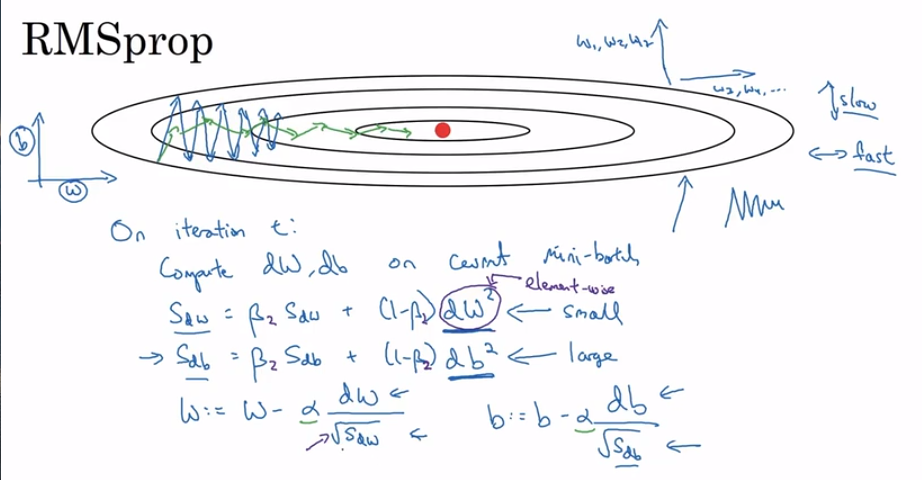 RMSprop
w₁, w₂, w₃
w₃, w₄, ...
slow
fast
b
w
On iteration t:
Compute dW, db on current mini-batch
element-wise
S_dw = β₂ S_dw + (1-β₂) dW² ← small
→ S_db = β₂ S_db + (1-β₂) db² ← large
W := W - α dW/√S_dw ← b := b - α db/√S_db ←